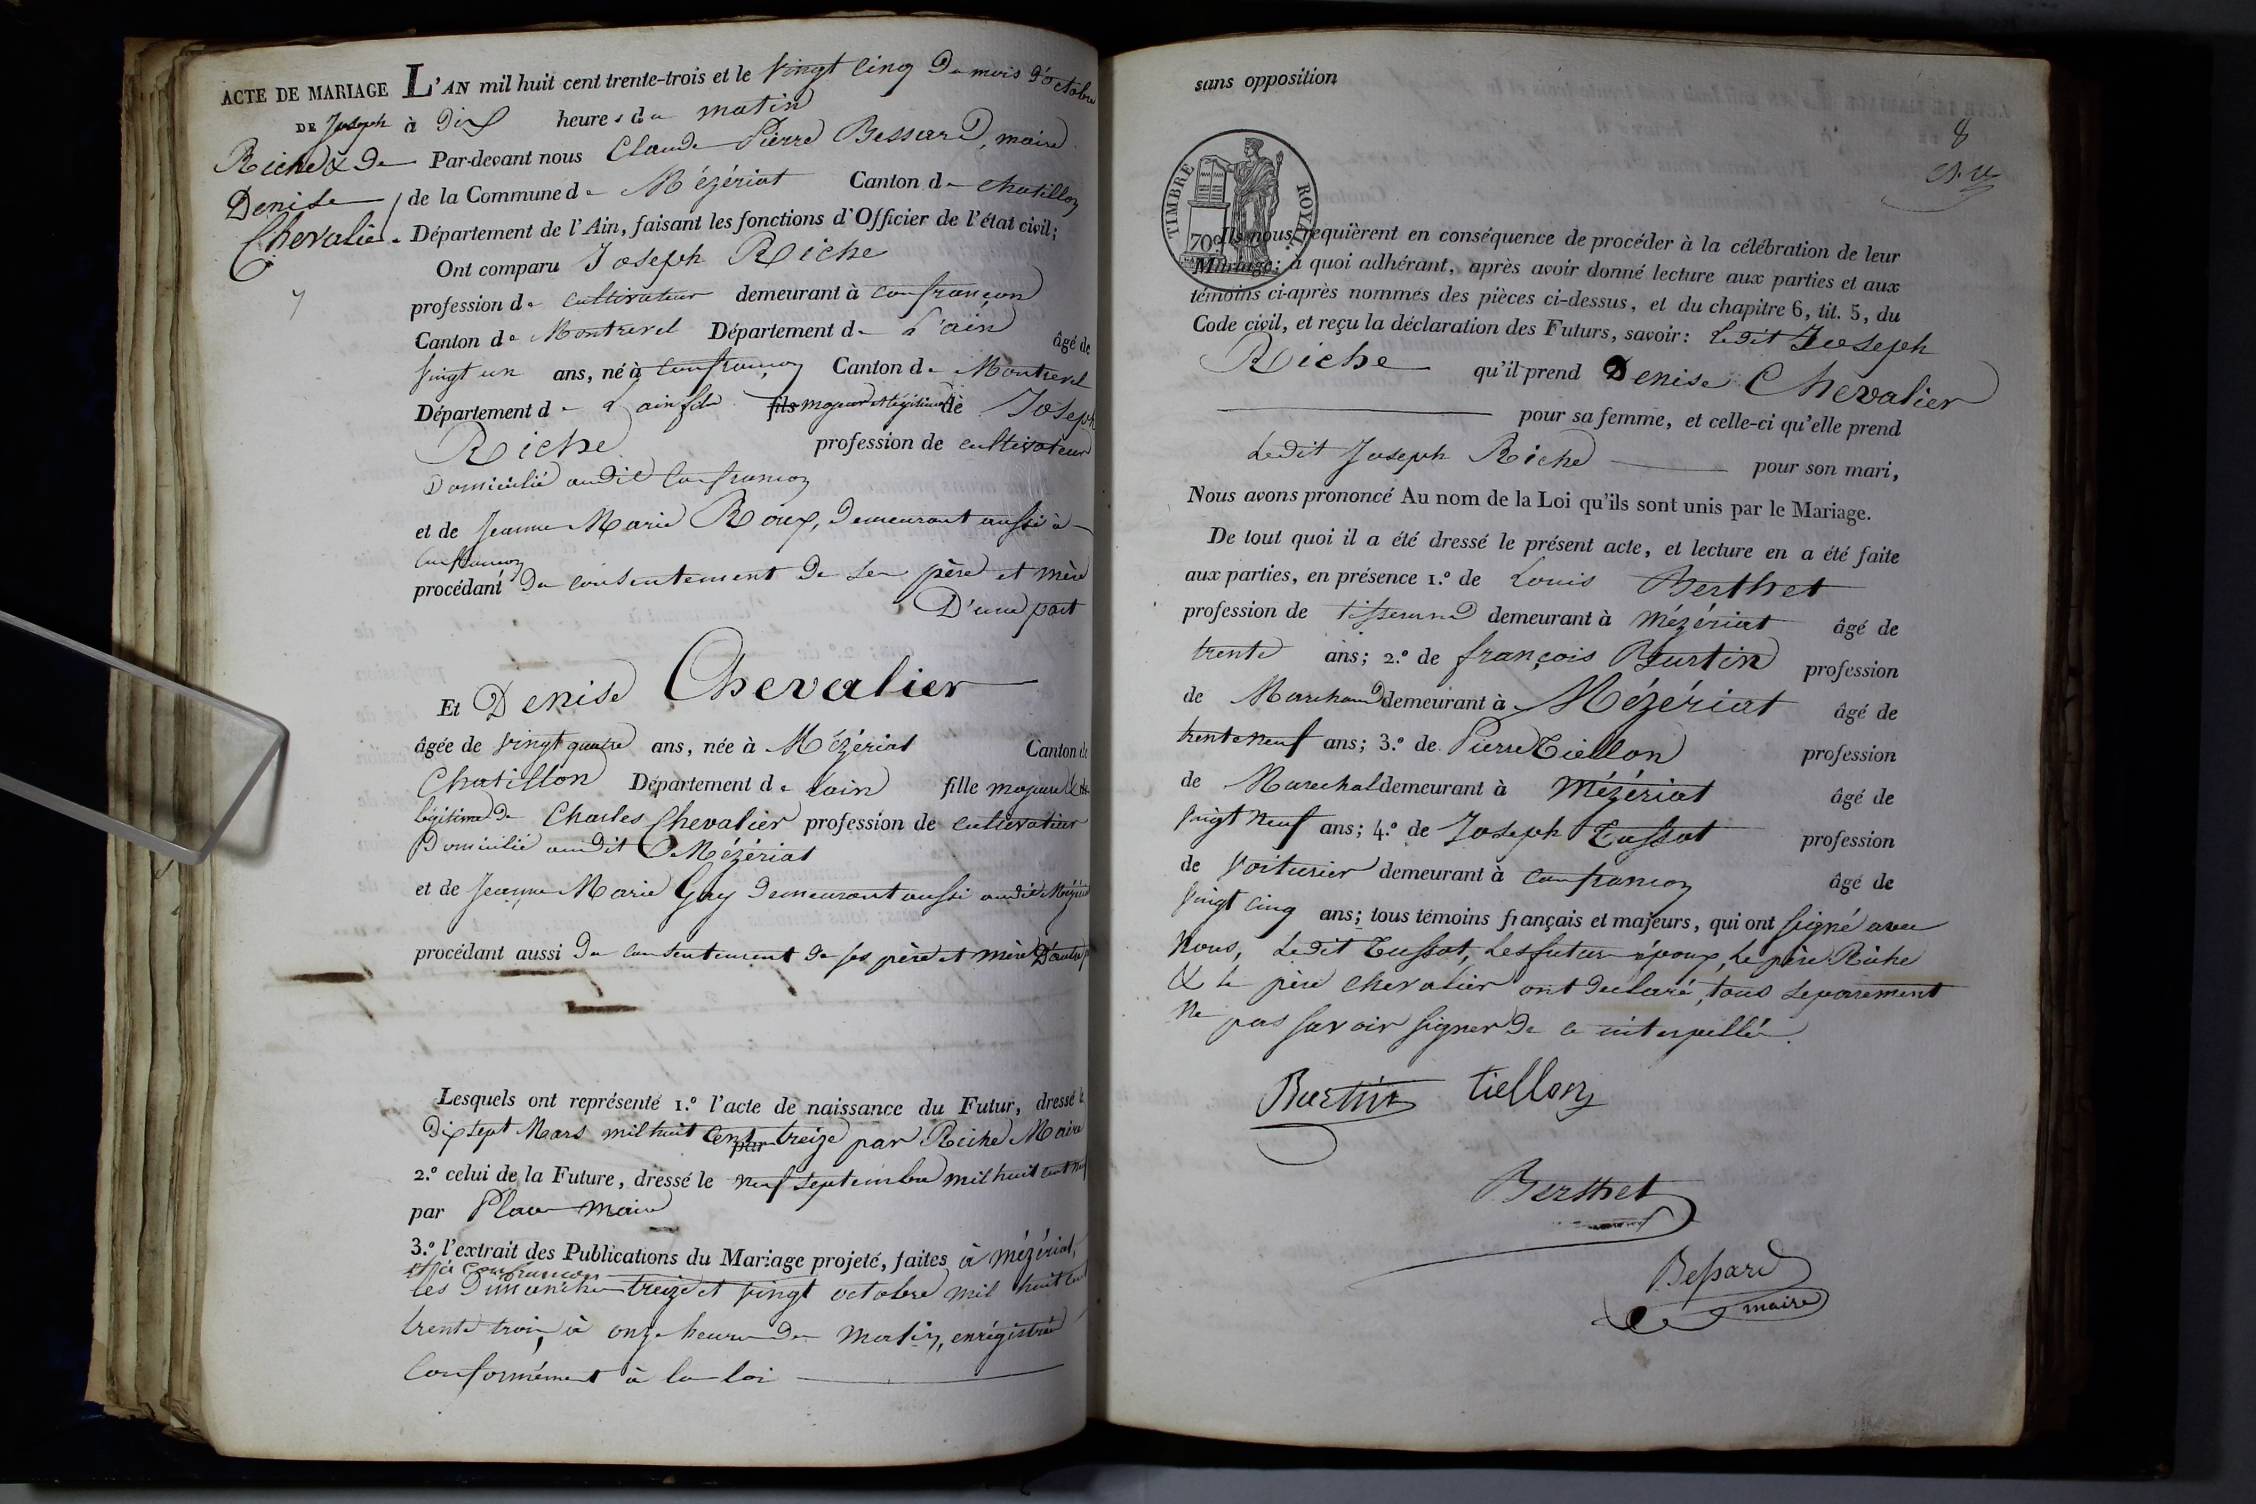 ACTE DE MARIAGE L'AN mil huit cent trente-trois et le vingt cinq du mois d'octobre
DE Joseph à dix heures du matin
Riche & de Par-devant nous Claude Pierre Bessard, maire
Denise de la Commune de Mézériat Canton de chatillon
Chevalier. Département de l'Ain, faisant les fonctions d'Officier de l'état civil;
7
Ont comparu Joseph Riche
profession de cultivateur demeurant à confrançon
Canton de Montrevel Département de L'ain âgé de
vingt un ans, né à confrançon Canton de Montrevel
Département de L'ain fils fils majeur et légitime de Joseph
Riche profession de cultivateur
Domicilié audit confrançon
et de Jeanne Marie Roux, demeurant aussi à
confrançon
procédant du consentement de ses père et mère
D'une part
Et Denise Chevalier
âgée de vingt quatre ans, née à Mézériat Canton de
Chatillon Département de Lain fille majeure &
légitime de Charles Chevalier profession de cultivateur
Domicilié audit Mézériat
et de Jeanne Marie Guy demeurant aussi audit Mézériat
procédant aussi du consentement de ses père et mère D'autre
Lesquels ont représenté 1.º l'acte de naissance du Futur, dressé le
Dix sept Mars mil huit cent treize par Riche Maire
par
2.º celui de la Future, dressé le neuf septembre mil huit cent neuf
par maire
3.º l'extrait des Publications du Mariage projeté, faites à mézériat,
et à confrançon
les Dimanches treize et vingt octobre mil huit cent
trente trois, à onze heures du matin, enrégistré
conformément à la loi
sans opposition
8
TIMBRE ROYAL
70c
Ils nous requièrent en conséquence de procéder à la célébration de leur
Mariage; à quoi adhérant, après avoir donné lecture aux parties et aux
témoins ci-après nommés des pièces ci-dessus, et du chapitre 6, tit. 5, du
Code civil, et reçu la déclaration des Futurs, savoir: Ledit Joseph
Riche qu'il prend Denise Chevalier
pour sa femme, et celle-ci qu'elle prend
Ledit Joseph Riche pour son mari,
Nous avons prononcé Au nom de la Loi qu'ils sont unis par le Mariage.
De tout quoi il a été dressé le présent acte, et lecture en a été faite
aux parties, en présence 1.º de Louis Berthet
profession de tisserand demeurant à Mézériat âgé de
trente ans; 2.º de françois Burtin profession
de Marchand demeurant à Mézériat âgé de
trente neuf ans; 3.º de Pierre Tiellon profession
de Marechal demeurant à Mézériat âgé de
vingt neuf ans; 4.º de Joseph Tussot profession
de voiturier demeurant à confrançon âgé de
vingt cinq ans; tous témoins français et majeurs, qui ont signé avec
Nous, Ledit Tussot, Les futurs époux, Le père Riche
& le père chevalier ont declaré, tous separement
ne pas savoir signer de ce interpellés.
Burtin tiellon
Berthet
Bessard
maire